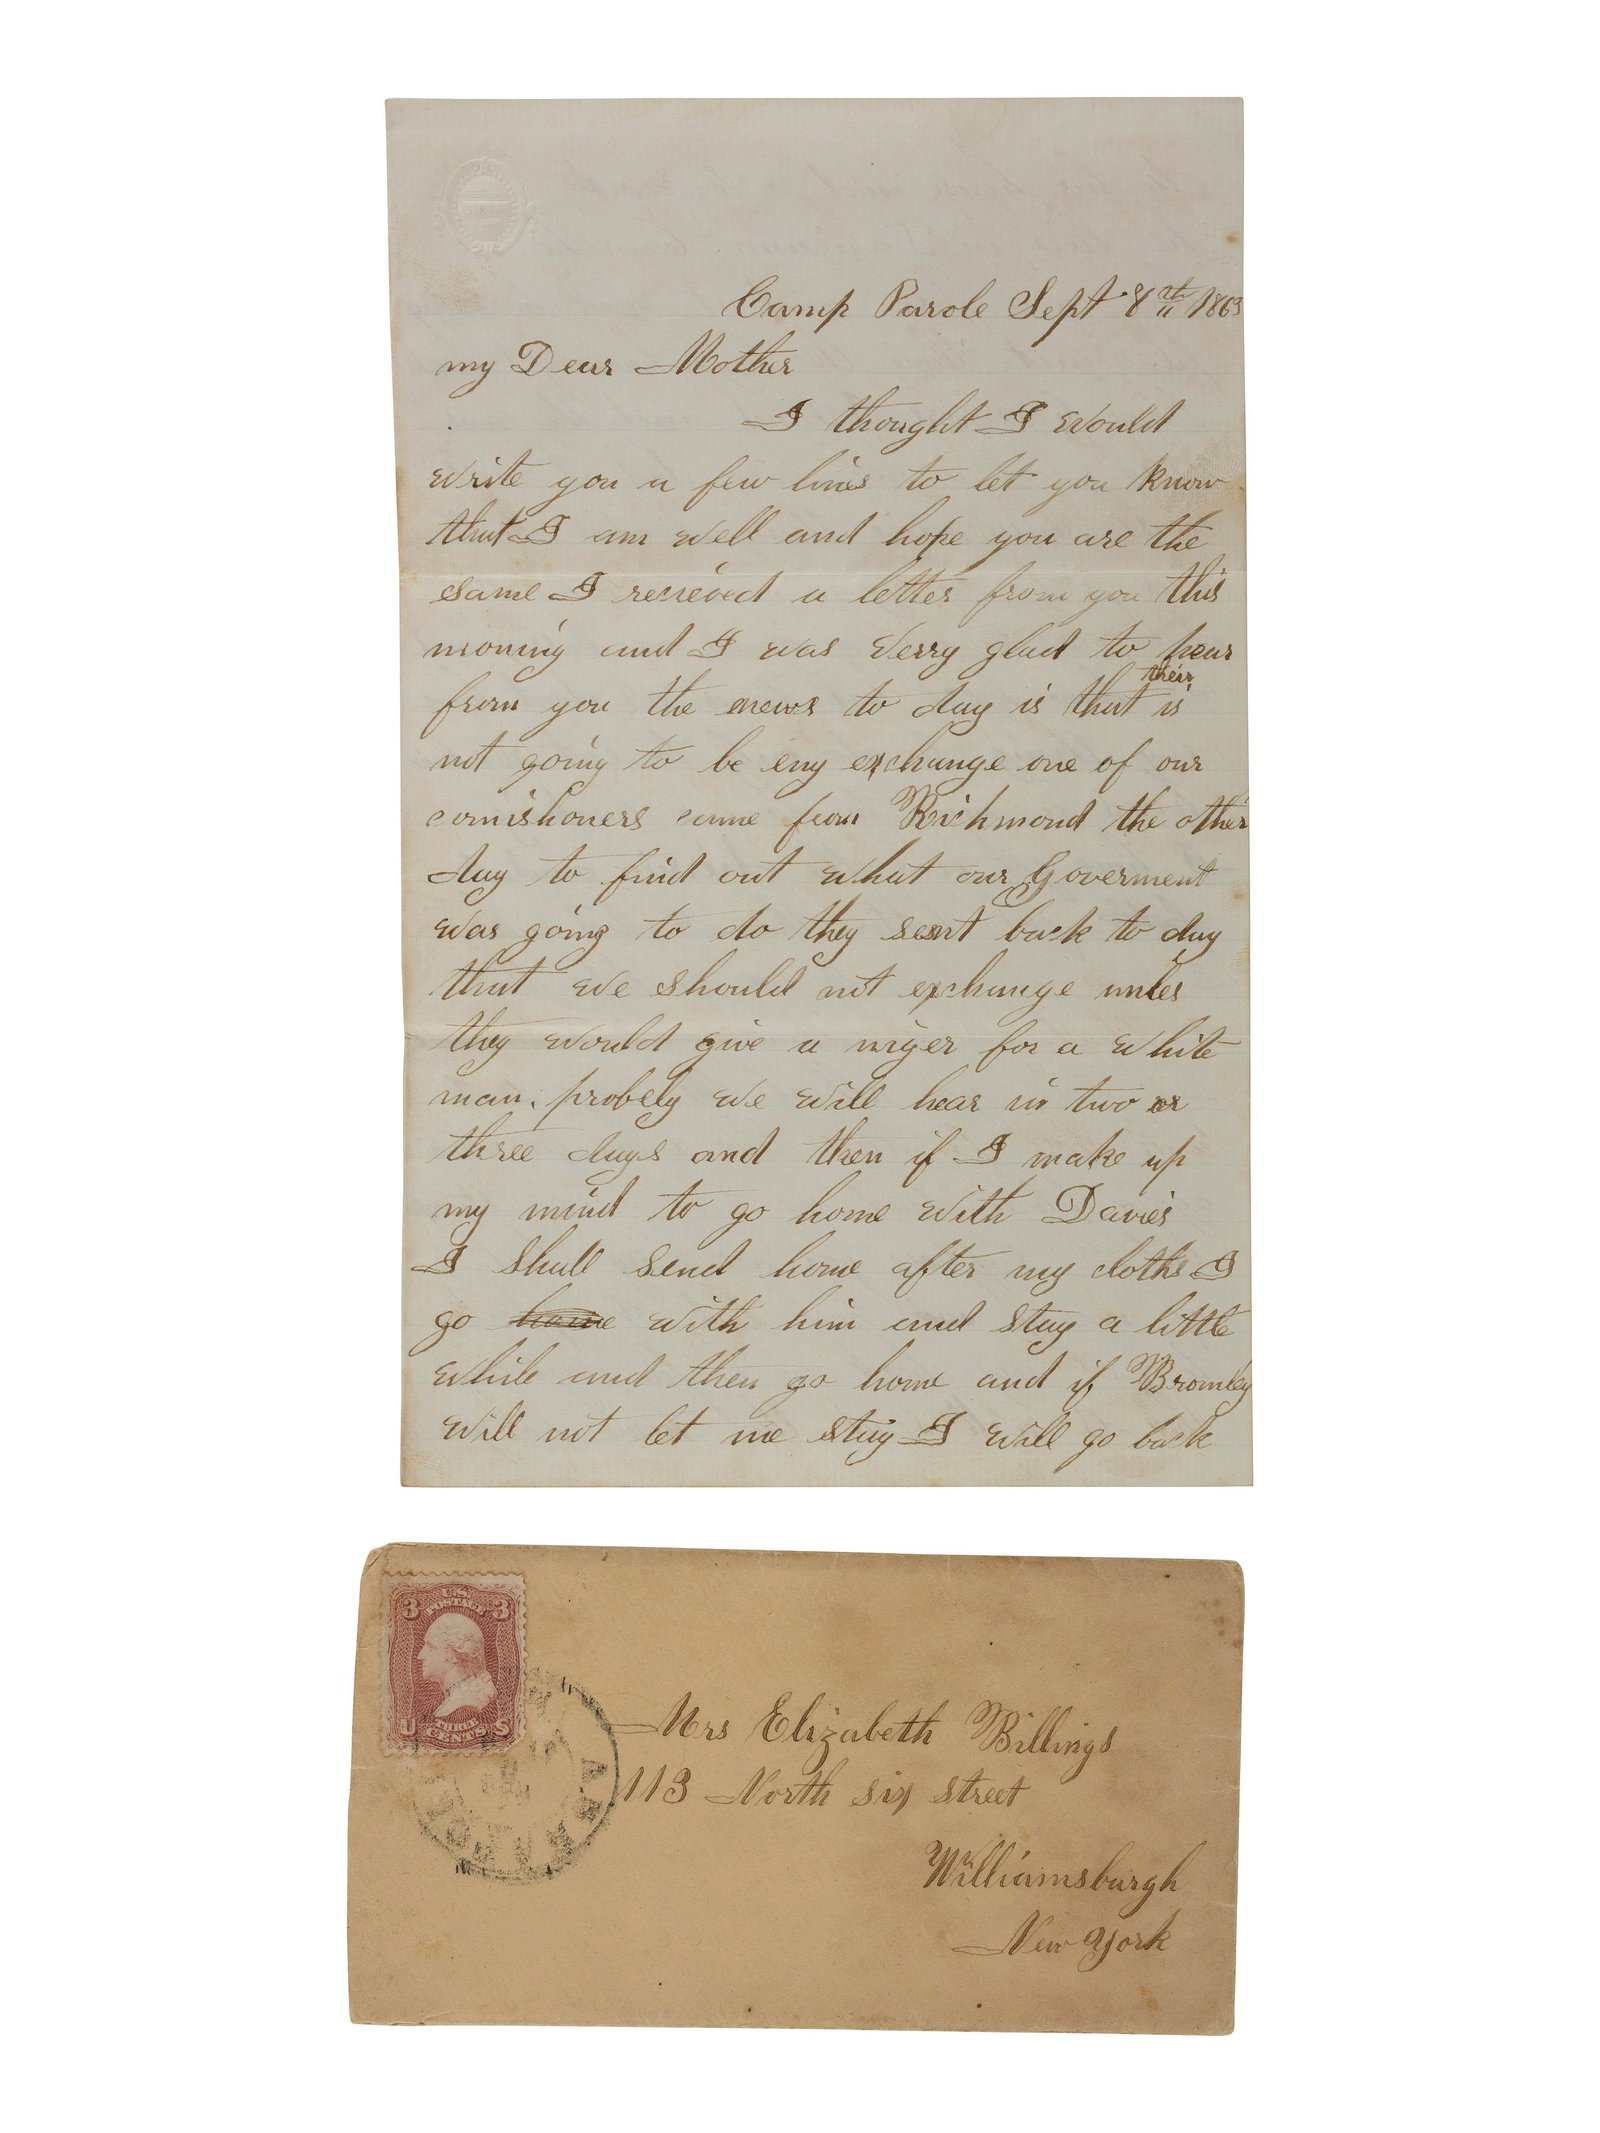 Camp Parole Sept 8th 1863
my Dear Mother
I thought I would
write you a few lines to let you know
that I am well and hope you are the
same I recieved a letter from you this
moning and I was verry glad to hear
their
from you the news to day is that is
not going to be eny exchange one of our
comishoners came from Richmond the other
day to find out what our Goverment
was going to do they sent back to day
that we should not exchange unles
they would give a niger for a white
man. probely we will hear in two or
three days and then if I make up
my mind to go home with Davies
I shall send home after my cloths I
go home with him and stay a little
while and then go home and if Bromley
will not let me stay I will go back
U.S.
POSTAGE
3 3
U THREE CENTS S
Mrs Elizabeth Billings
113 North six street
Williamsburgh
New York